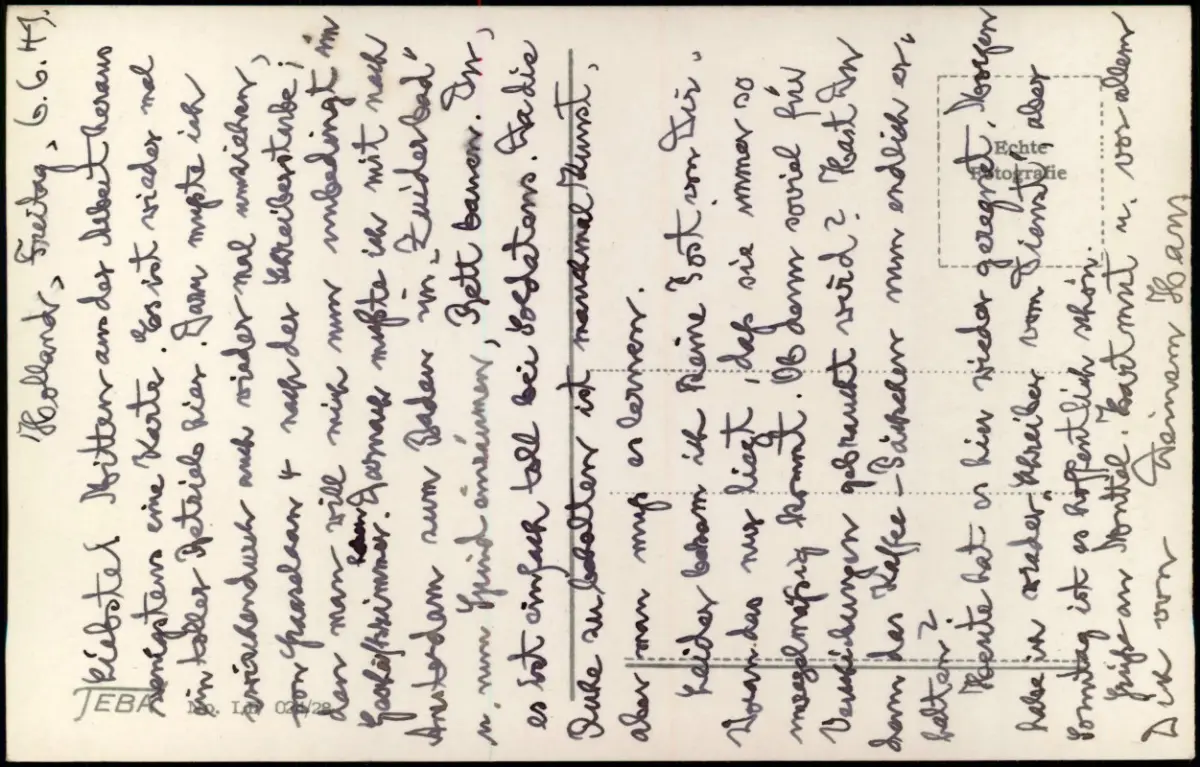 Holland, Freitag, 6.6.41.
Liebste! Mitten an der Arbeit heraus
wenigstens eine Karte. Es ist wieder mal
ein toller Betrieb hier. Dann mußte ich
zwischendurch auch wieder mal umziehen,
von nach der Schreiberstube;
den man will mich nun unbedingt im
Geschäftszimmer haben. Darnach mußte ich mit nach
Amsterdam zum Baden im „Zuiderbad"
u. nun Spind einräumen, Bett bauen. Du,
es ist einfach toll bei Soldatens. Da die
Ruhe zu behalten ist manchmal Kunst,
aber man muß es lernen.
Leider bekam ich keine Post von Dir.
Woran das nur liegt, daß sie immer so
unregelmäßig kommt. Ob denn soviel für
Verschiebungen gebraucht wird? Hast Du
denn das Kaffee-Päckchen nun endlich er-
halten?
Heute hat es hier wieder geregnet. Morgen
habe ich wieder „Schreiber vom Dienst", aber
Sonntag ist es hoffentlich schön.
Grüße an Muttel, Hartmut u. vor allem
Dich von Deinem Hans
TEBA No.
Echte
Fotografie